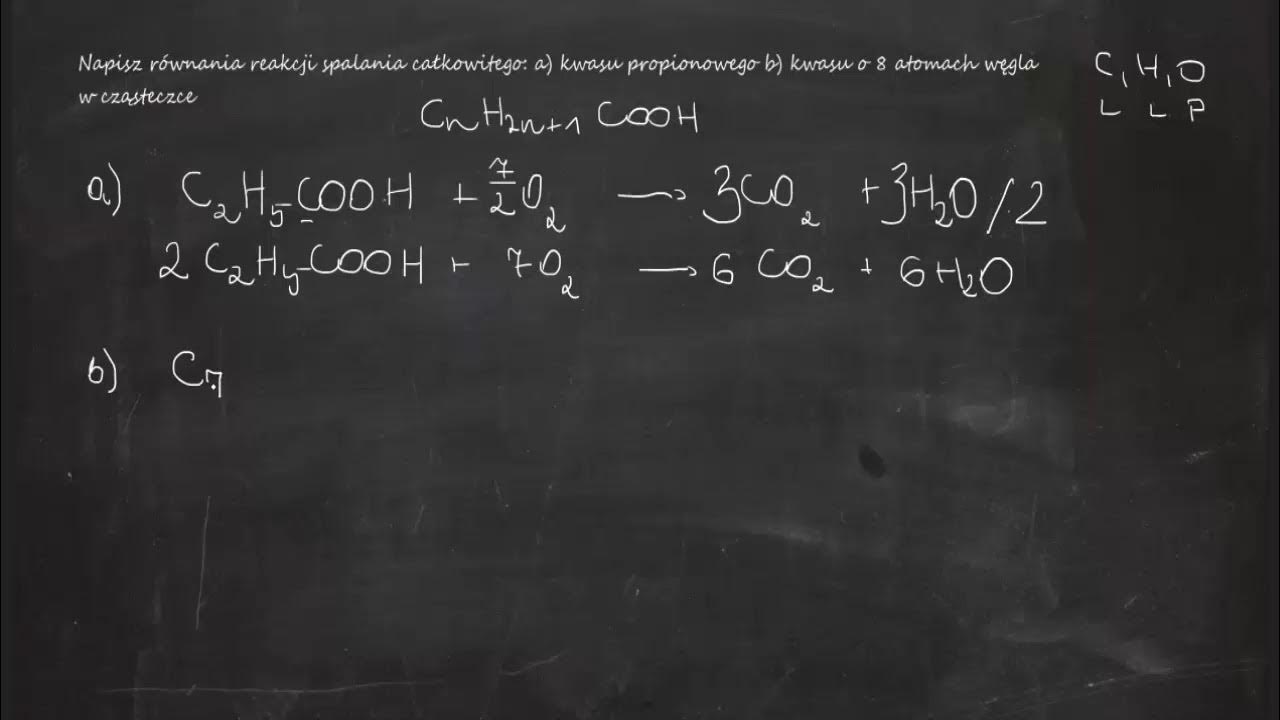 Napisz równania reakcji spalania całkowitego: a) kwasu propionowego b) kwasu o 8 atomach węgla
w cząsteczce
C, H, O
L L P
CₙH₂ₙ₊₁ COOH
a) C₂H₅-COOH + 7/2 O₂ → 3CO₂ + 3H₂O /·2
2 C₂H₅-COOH + 7O₂ → 6 CO₂ + 6H₂O
b) C₇